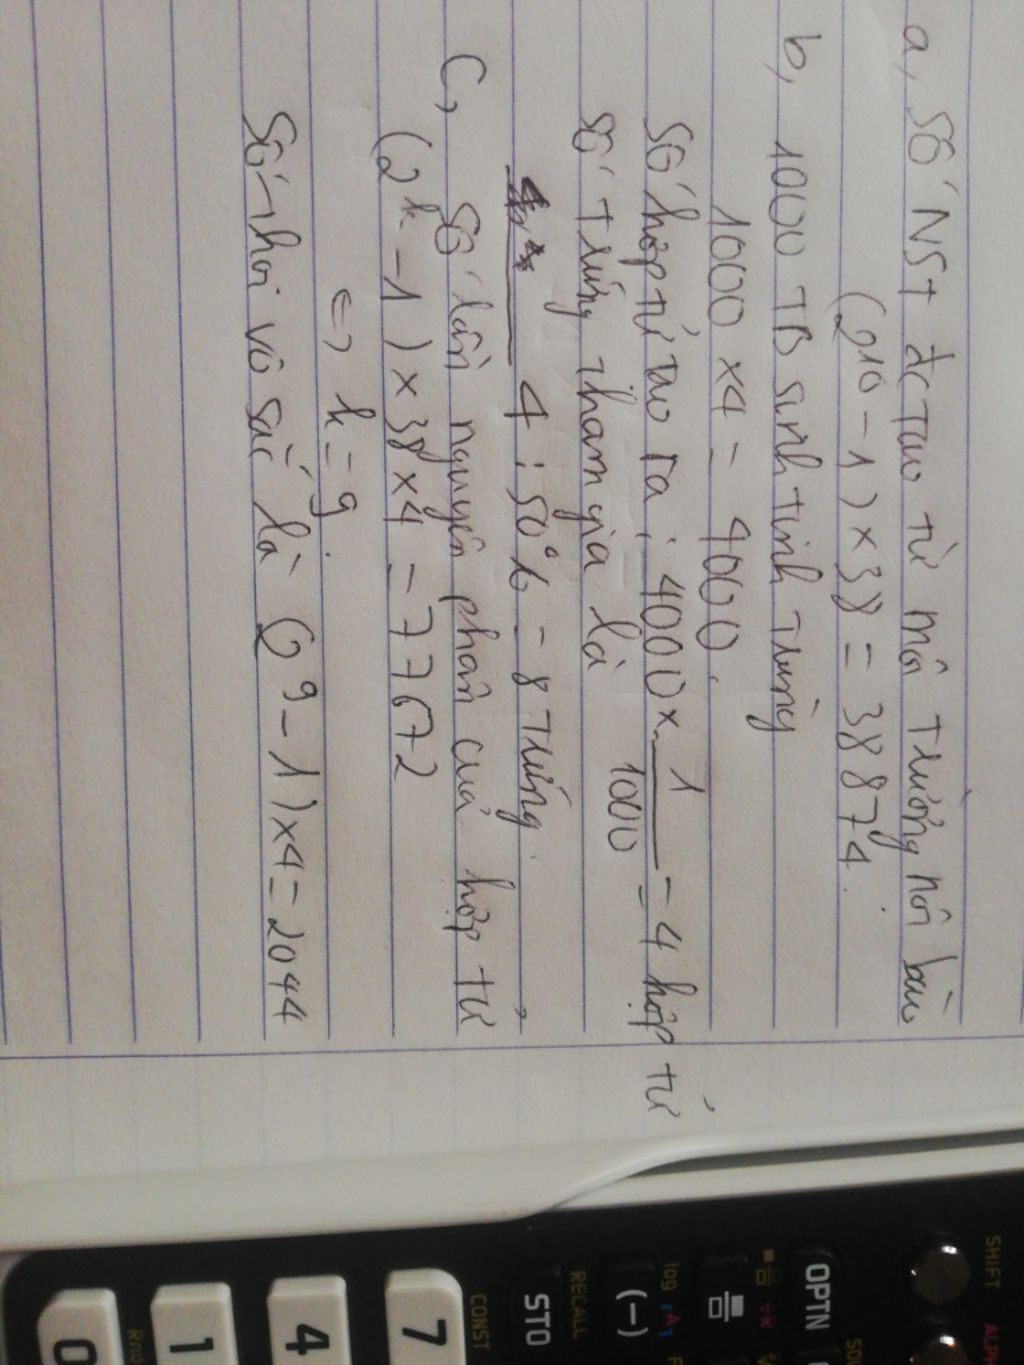 a, Số NST đc tạo từ môi trường nội bào
(2^10 - 1) x 38 = 38874.
b, 1000 TB sinh tinh trùng
1000 x4 = 4000.
Số hợp tử tạo ra : 4000 x 1/1000 = 4 hợp tử
số trứng tham gia là
4 : 50% = 8 trứng.
C, Số lần nguyên phân của hợp tử
(2^k - 1) x 38 x4 = 77672
=> k = 9.
Số thoi vô sắc là (2^9 - 1) x4 = 2044
SHIFT
OPTN
log
(-)
RECALL
STO
CONST
7
4
1
0